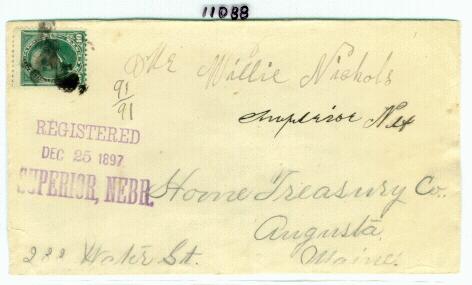 11088
10
Willie Nichols
91
91
Superior Neb
REGISTERED
DEC 25 1897
SUPERIOR, NEBR.
Home Treasury Co.
Augusta
Maine.
Water St.